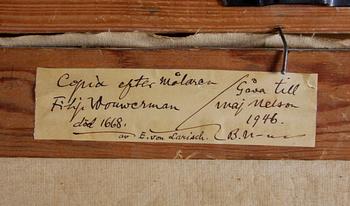 Copia efter målaren
Filip. Wouwerman
död 1668.
av E. von Larisch.
Gåva till
maj Nelson
1946.